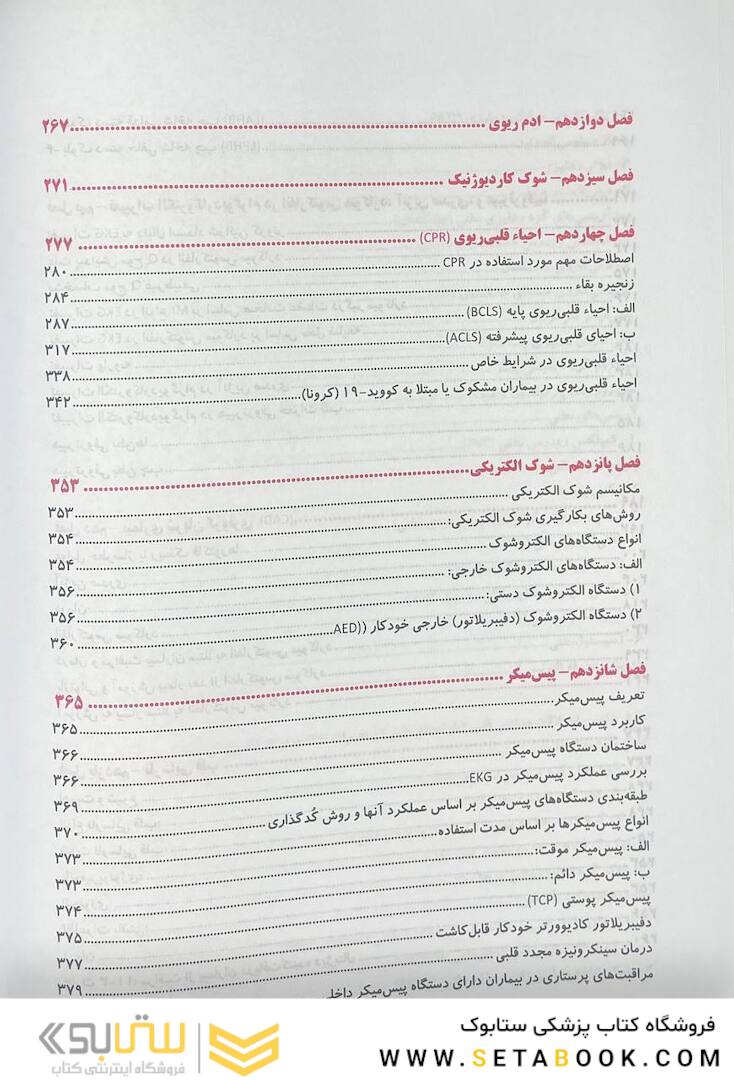 فصل دوازدهم- ادم ریوی ........ ۲۶۷
فصل سیزدهم- شوک کاردیوژنیک ........ ۲۷۱
فصل چهاردهم- احیاء قلبی‌ریوی (CPR) ........ ۲۷۷
اصطلاحات مهم مورد استفاده در CPR ........ ۲۸۰
زنجیره بقاء ........ ۲۸۴
الف: احیاء قلبی‌ریوی پایه (BCLS) ........ ۲۸۷
ب: احیای قلبی‌ریوی پیشرفته (ACLS) ........ ۳۱۷
احیاء قلبی‌ریوی در شرایط خاص ........ ۳۳۸
احیاء قلبی‌ریوی در بیماران مشکوک یا مبتلا به کووید-۱۹ (کرونا) ........ ۳۴۲
فصل پانزدهم- شوک الکتریکی ........ ۳۵۳
مکانیسم شوک الکتریکی ........ ۳۵۳
روش‌های بکارگیری شوک الکتریکی: ........ ۳۵۴
انواع دستگاه‌های الکتروشوک ........ ۳۵۴
الف: دستگاه‌های الکتروشوک خارجی: ........ ۳۵۶
۱) دستگاه الکتروشوک دستی: ........ ۳۵۶
۲) دستگاه الکتروشوک (دفیبریلاتور) خارجی خودکار ((AED ........ ۳۶۰
فصل شانزدهم- پیس‌میکر ........ ۳۶۵
تعریف پیس‌میکر ........ ۳۶۵
کاربرد پیس‌میکر ........ ۳۶۶
ساختمان دستگاه پیس‌میکر ........ ۳۶۶
بررسی عملکرد پیس‌میکر در EKG ........ ۳۶۹
طبقه‌بندی دستگاه‌های پیس‌میکر بر اساس عملکرد آنها و روش کُدگذاری ........ ۳۷۰
انواع پیس‌میکرها بر اساس مدت استفاده ........ ۳۷۳
الف: پیس‌میکر موقت: ........ ۳۷۳
ب: پیس‌میکر دائم: ........ ۳۷۴
پیس‌میکر پوستی (TCP) ........ ۳۷۵
دفیبریلاتور کادیوورتر خودکار قابل‌کاشت ........ ۳۷۷
درمان سینکرونیزه مجدد قلبی ........ ۳۷۹
مراقبت‌های پرستاری در بیماران دارای دستگاه پیس‌میکر داخلی
فروشگاه کتاب پزشکی ستابوک
WWW.SETABOOK.COM
ستابوک
فروشگاه اینترنتی کتاب